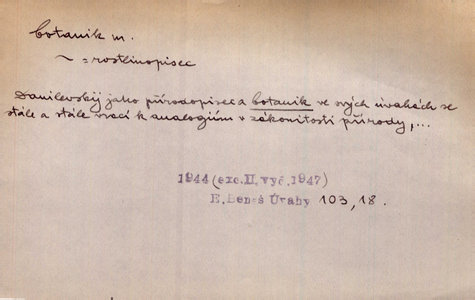 botanik m.
~ = rostlinopisec
Danilevskij jako přírodopisec a botanik ve svých úvahách se
stále a stále vrací k analogiím v zákonitosti přírody,...
1944 (exc.II.vyd.1947)
E.Beneš Úvahy 103,18.